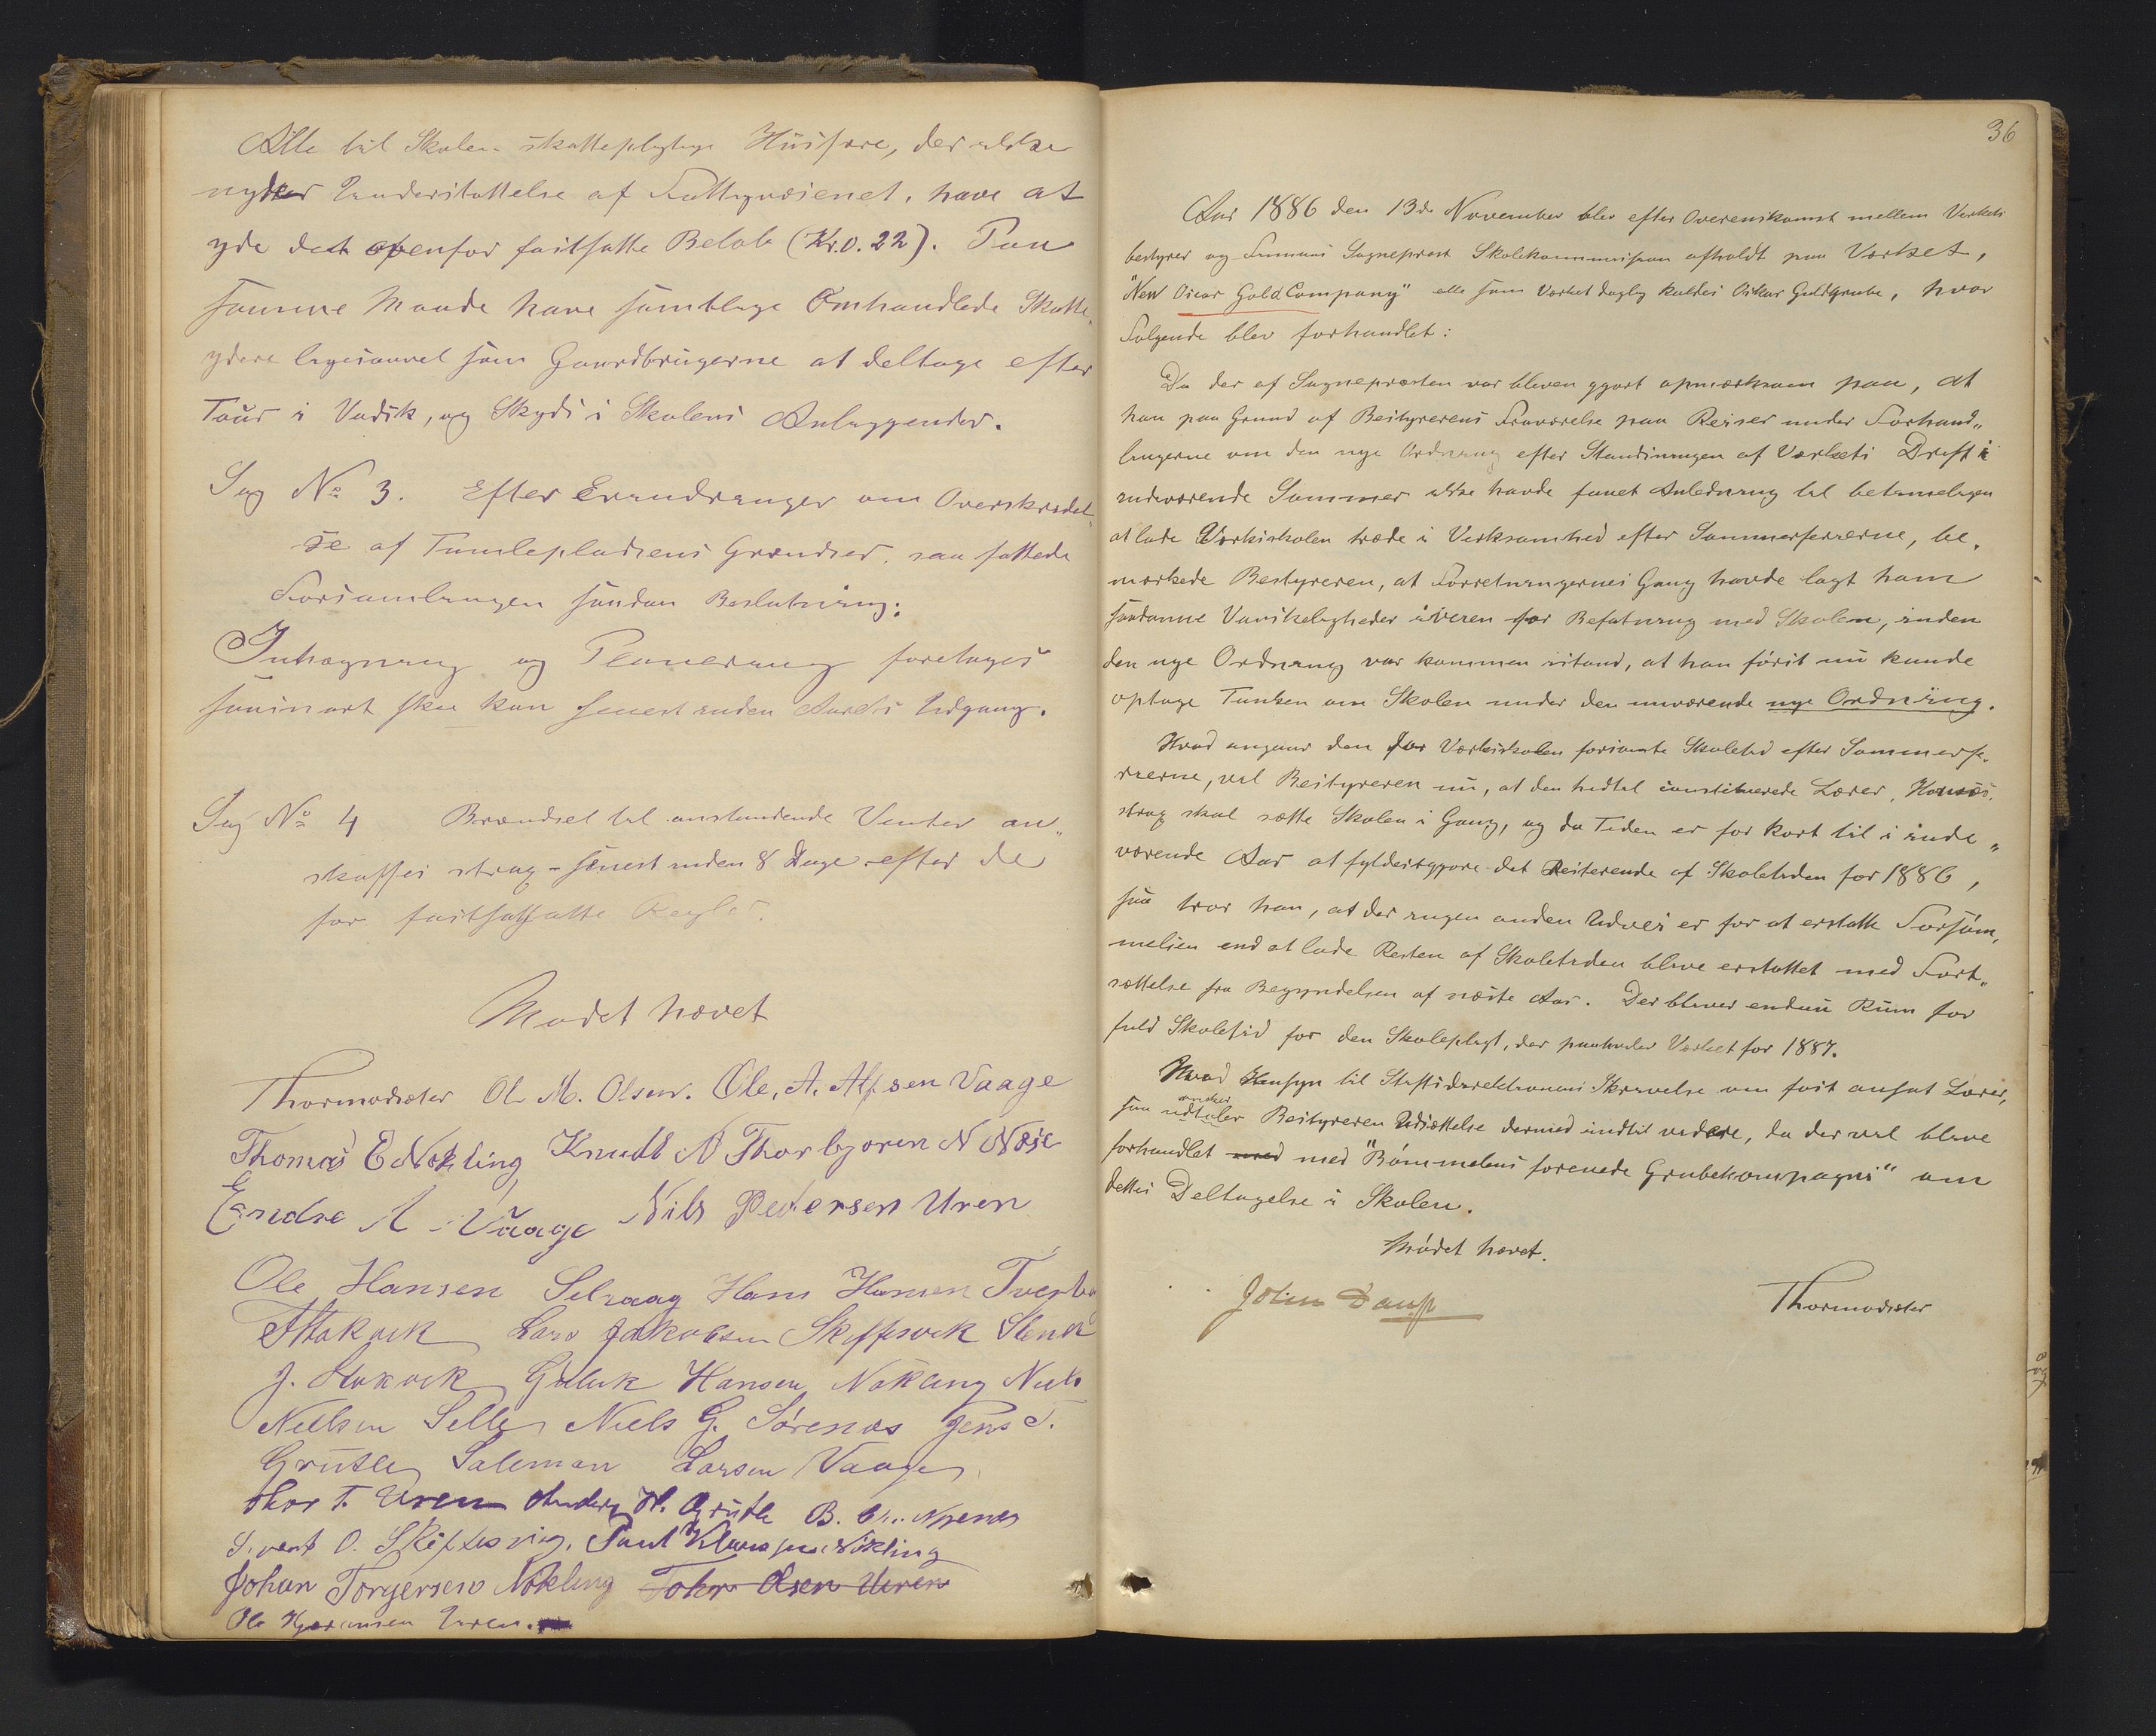 Alle til Skolen skattepligtige Huusfære, der ikke
nyder Understøttelse af Fattigvæsenet, have at
yde det ovenfor fastsatte Beløb (Kr. 0.22). Paa
samme Maade have samtlige Omhandlede Skatte,,
ydere ligesaavel som Gaardbrugerne at deltage efter
Tour i Vadsk, og Skyds i Skolens Anliggender.
Sag No 3. Efter Erindringer om Overskridel,,
se af Tumlepladsens Grændser, saa fattede
Forsamlingen saadan Beslutning:
Inhegning og Planering foretages
saasnart ske kan senest inden Aarets Udgang.
Sag No 4 Brændsel til anstundende Vinter an,,
skaffes strax - senest inden 8 Dage efter de
for fastsatte Regler.
Mødet hævet
Thormodsæter Ole M. Olsen. Ole, A. Alfsen Vaage
Thomas E Nøkling Knudt N Thorbjoren N Nøse
Endre A Vaage Nils Pedersen Uren
Ole Hansen Selvaag Hans Hansen
Stokvik Lars Jakobsen Skiffesvik
J. Stokvik Gulik Hansen Nøkling Niels
Nielsen Selle Niels G. Sørenæs Jens T.
Grutle Salemon Larsen Vaage
Thor T. Uren Anders H. Grutle B.
O. Skiftesvig. Paul Klausen Nøkling
Johan Torgersen Nøkling Tohr Olsen Uren
Ole Uren.
36
Aar 1886 den 13de November blev efter Overenskomst mellem Værkets
bestyrer og Finnaas Sogneprest Skolekommission afholdt paa Værket,
"New Oscar Gold Company" elle som Værket daglig kaldes Oskar Guldgrube, hvor
Følgende blev forhandlet:
Da der af Sognepræsten var bleven gjort opmærksom paa, at
han paa Grund af Bestyrerens Fraværelse paa Reiser under Forhand,,
lingerne om den nye Ordning efter Standsningen af Værkets Drift i
indeværende Sommer ikke havde faaet Anledning til betimeligen
at lade Værkskolen træde i Virksomhed efter Sommerferierne, be,,
mærkede Bestyreren, at Forretningernes Gang havde lagt ham
saadanne Vanskeligheder iveien for Befatning med Skolen, inden
den nye Ordning var kommen istand, at han først nu kunde
optage Tanken om Skolen under den nuværende nye Ordning.
Hvad angaar den for Værkskolen forsømte Skoletid efter Sommerfe,,
rierne, vil Bestyreren nu, at den hidtil constituerede Lærer,
strax skal sætte Skolen i Gang, og da Tiden er for kort til i inde,,
værende Aar at fyldestgjøre det Resterende af Skoletiden for 1886,
saa tror han, at der ingen anden Udvei er for at erstatte Forsøm,,
melsen end at lade Resten af Skoletiden blive erstattet med Fort,,
sættelse fra Begyndelsen af næste Aar. Der bliver endnu Rum for
fuld Skoletid for den Skolepligt, der paahviler Værket for 1887.
Hvad Hensyn til Stiftsdirektionens Skrivelse om fast ansat Lærer,
saa udtaler ønsker Bestyreren Udsættelse dermed indtil videre, da der vil blive
forhandlet med med "Bømmeløens forenede Grubekompagni" om
dettes Deltagelse i Skolen.
Mødet hævet.
John Daw Jr
Thormodsæter